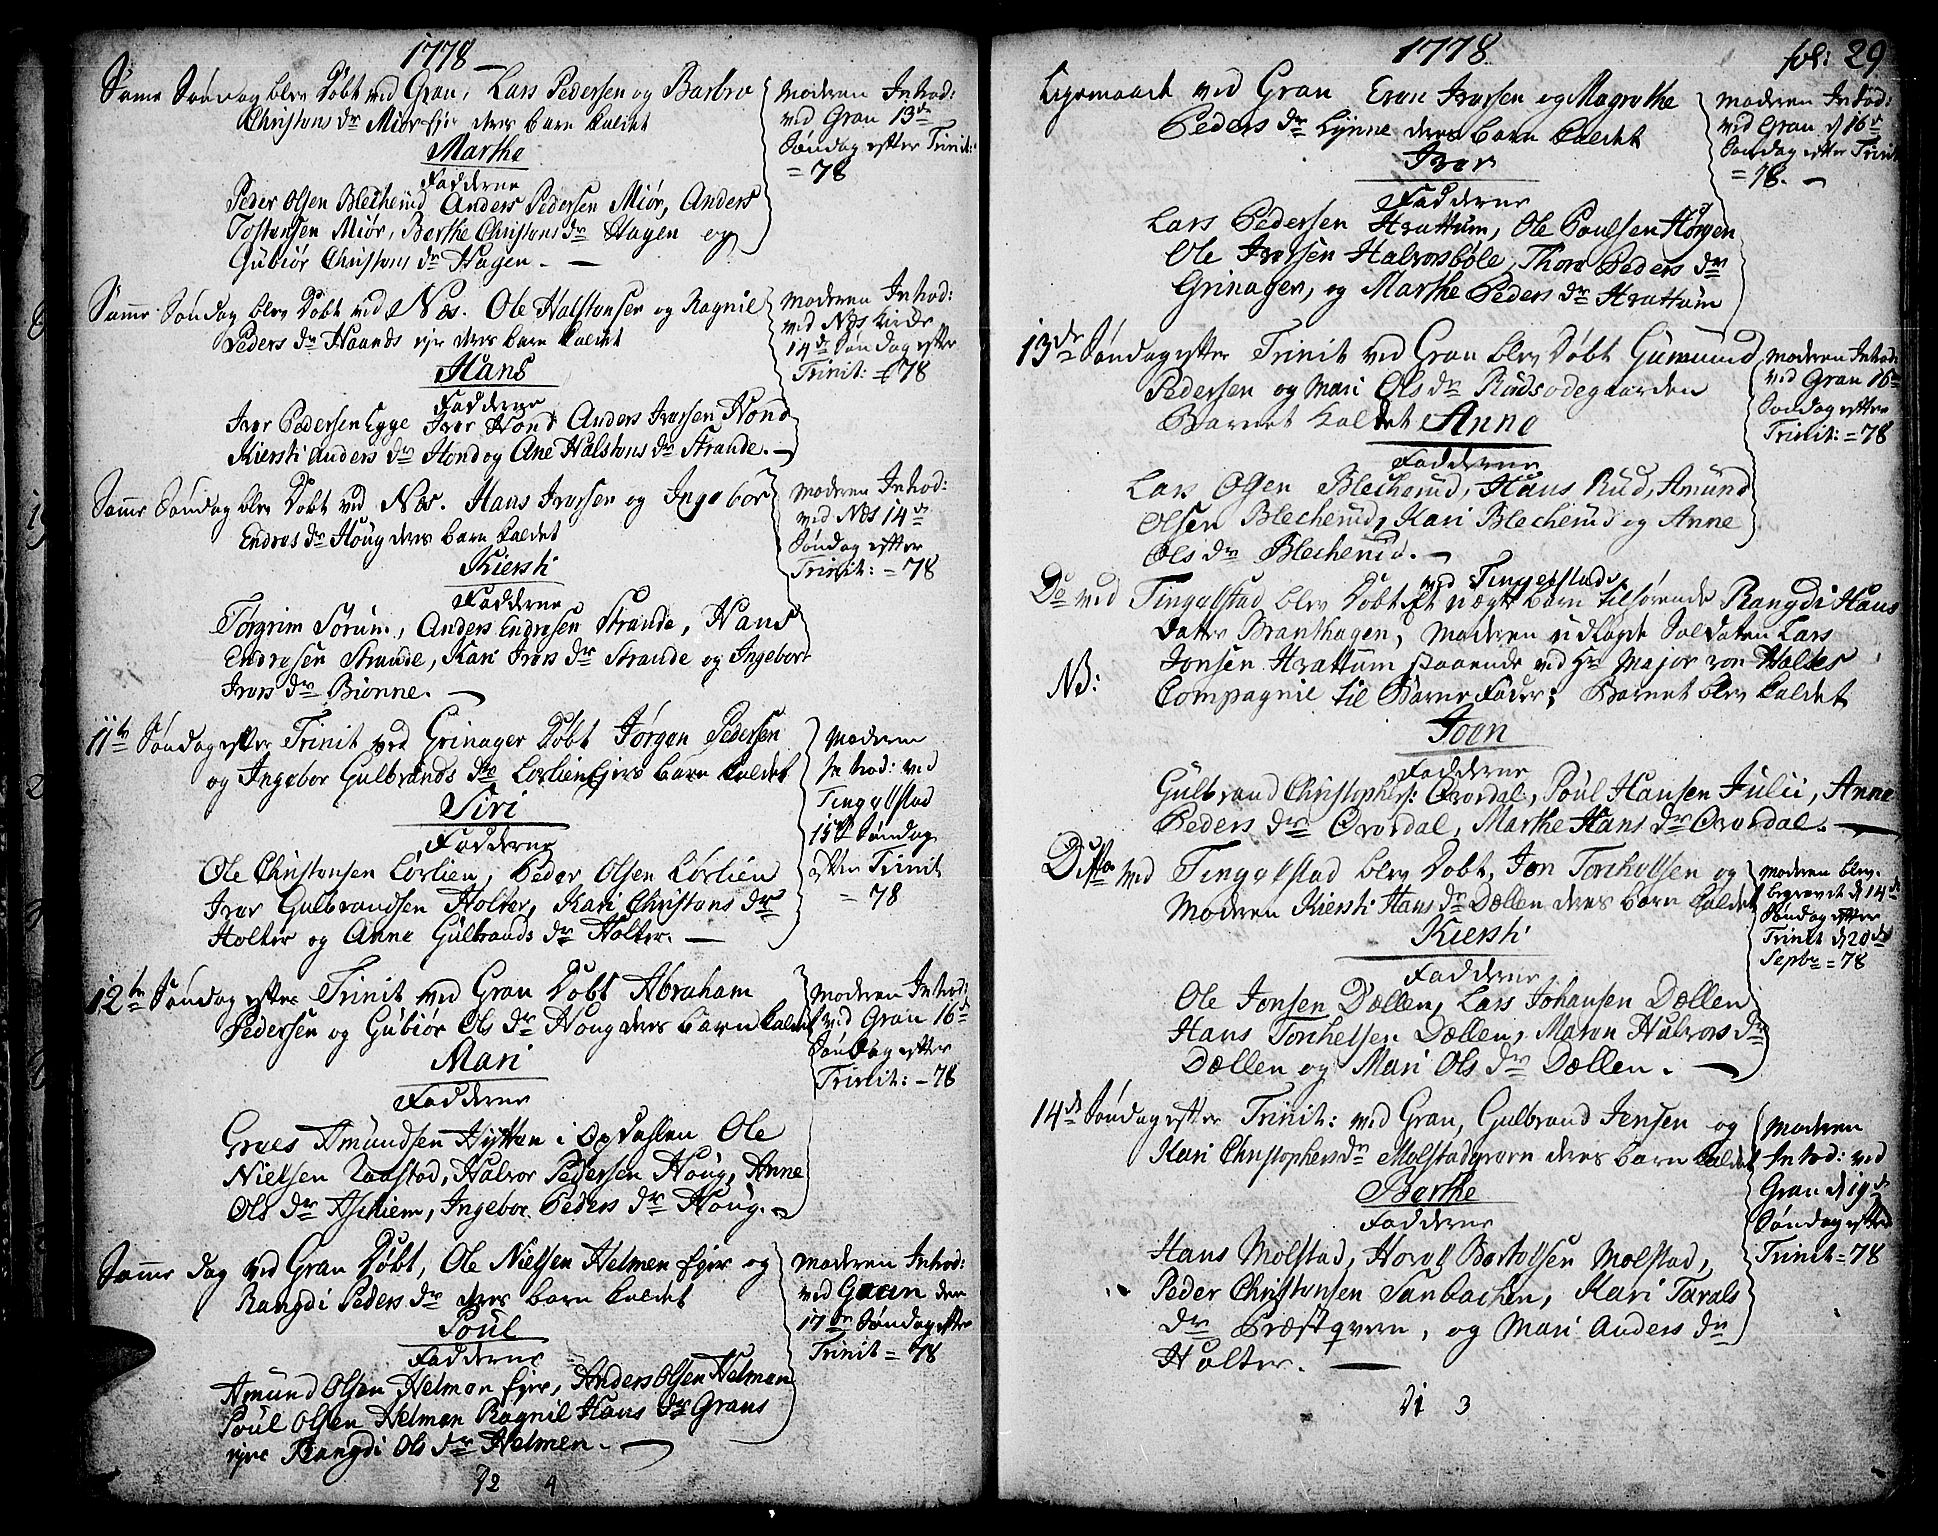 1778
Same Søndag blev Døbt ved Gran, Lars Pedersen og Barbro
Christens dr Miør eje deres barn kaldet
Marthe
Fadderne
Peder Olsen Blecherud Anders Pedersen Miør, Anders
Tostensen Miør, Berthe Christens dr Hagen og
Gubiør Christens dr Hagen.
Moderen Introd:
ved Gran 13de
Søndag efter Trinit:
= 78
Samme Søndag blev Døbt ved Næs. Ole Halstensen og Ragnil
Peders dr Haands eje deres barn kaldet
Hans
Fadderne
Iver Pedersen Egge Iver Hond Anders Iversen Hond
Kiersti Anders dr Hond og Ane Halstens dr Strande.
Moderen Introd:
ved Næs Kirke
14de Søndag efter
Trinit: = 78
Samme Søndag blev Døbt ved Næs. Hans Iversen og Ingebor
Endres dr Houg deres barn kaldet
Kiersti
Fadderne
Torgrim Sorum, Anders Endresen Strande, Hans
Endresen Strande, Kari Ivers dr Strande og Ingebor
Ivers dr Bionne.
Moderen Introd:
ved Næs 14de
Søndag efter
Trinit: = 78
11te Søndag efter Trinit ved Grinager Døbt Jørgen Pedersen
og Ingebor Gulbrands dr Lørlien Ejers barn kaldet
Siri
Fadderne
Ole Christensen Lørlien, Peder Olsen Lørlien
Iver Gulbrandsen Holter, Kari Christens dr
Holter og Anne Gulbrands dr Holter.
Moderen
Introd: ved
Tingelstad
15de Søndag
efter Trinit
= 78
12te Søndag efter Trinit ved Gran Døbt Abraham
Pedersen og Gubiør Ols dr Houg deres barn kaldet
Mari
Fadderne
Graes Amundsen Hytten i Opdahlen Ole
Nielsen Raastad, Halvor Pedersen Houg, Anne
Ols dr Aschiem, Ingebor Peders dr Houg.
Moderen Introd:
ved Gran 16de
Søndag efter
Trinit: - 78
Samme dag ved Gran Døbt, Ole Nielsen Helmen Ejer og
Rangdi Peders dr deres barn kaldet
Poul
Fadderne
Amund Olsen Helmen Ejer, Anders Olsen Helmen
Poul Olsen Helmen Ragnil Hans dr Grans
eje Rangdi Ols dr Helmen.
Moderen Introd:
ved Gran den
17de Søndag efter
Trinit = 78
72 4
1778
fol: 29
Ligemaade ved Gran Even Iversen og Magrethe
Peders dr Lynne deres barn kaldet
Iver
Fadderne
Lars Pedersen Hvattum, Ole Poulsen Horgen
Ole Iversen Halvorsbøle, Thore Peders dr
Grinager, og Marthe Peders dr Hvattum
Moderen Introd:
ved Gran d 16de
Søndag efter Trinit
= 78.
13de Søndag efter Trinit ved Gran blev Døbt Gumund
Pedersen og Mari Ols dr Rudsødegaarden
Barnet kaldet Anne
Fadderne
Lars Olsen Blecherud, Hans Rud, Amund
Olsen Blecherud, Kari Blecherud og Anne
Ols dr Blecherud.
Moderen Introd:
ved Gran 16de
Søndag efter
Trinit: = 78
Do ved Tingelstad blev Døbt Et uægte barn tilhørende Rangdi Hans
ved Tingelstad
datter Branthagen, Moderen udlagde Soldaten Lars
NB:
Jonsen Hvattum staaende ved Hr Major von Waltes
Compagnie til Barne Fader; Barnet blev kaldet
Joen
Fadderne
Gulbrand Christophers: Ovordal, Poul Hansen Julii, Anne
Peders dr Ovordal, Marthe Hans dr Ovordal.
Ditto ved Tingelstad blev Døbt, Jon Torchelsen og
Moderen Kiersti Hans dr Dællen deres barn kaldet
Kiersti
Fadderne
Ole Jonsen Dællen, Lars Johansen Dællen
Hans Torchelsen Dællen, Maren Halvors dr
Dællen og Mari Ols dr Dællen.
Moderen blev
begravet d 14de
Søndag efter
Trinit d 20de
Septbr = 78
14de Søndag efter Trinit: ved Gran, Gulbrand Jensen og
Kari Christophers dr Molstadqvern deres barn kaldet
Berthe
Fadderne
Hans Molstad, Hovel Bertelsen Molstad,
Peder Christensen Sanbachen, Kari Tarals
dr Præstqvern, og Mari Anders dr
Holter.
Moderen
Introd: ved
Gran d 19de
Søndag efter
Trinit = 78
3